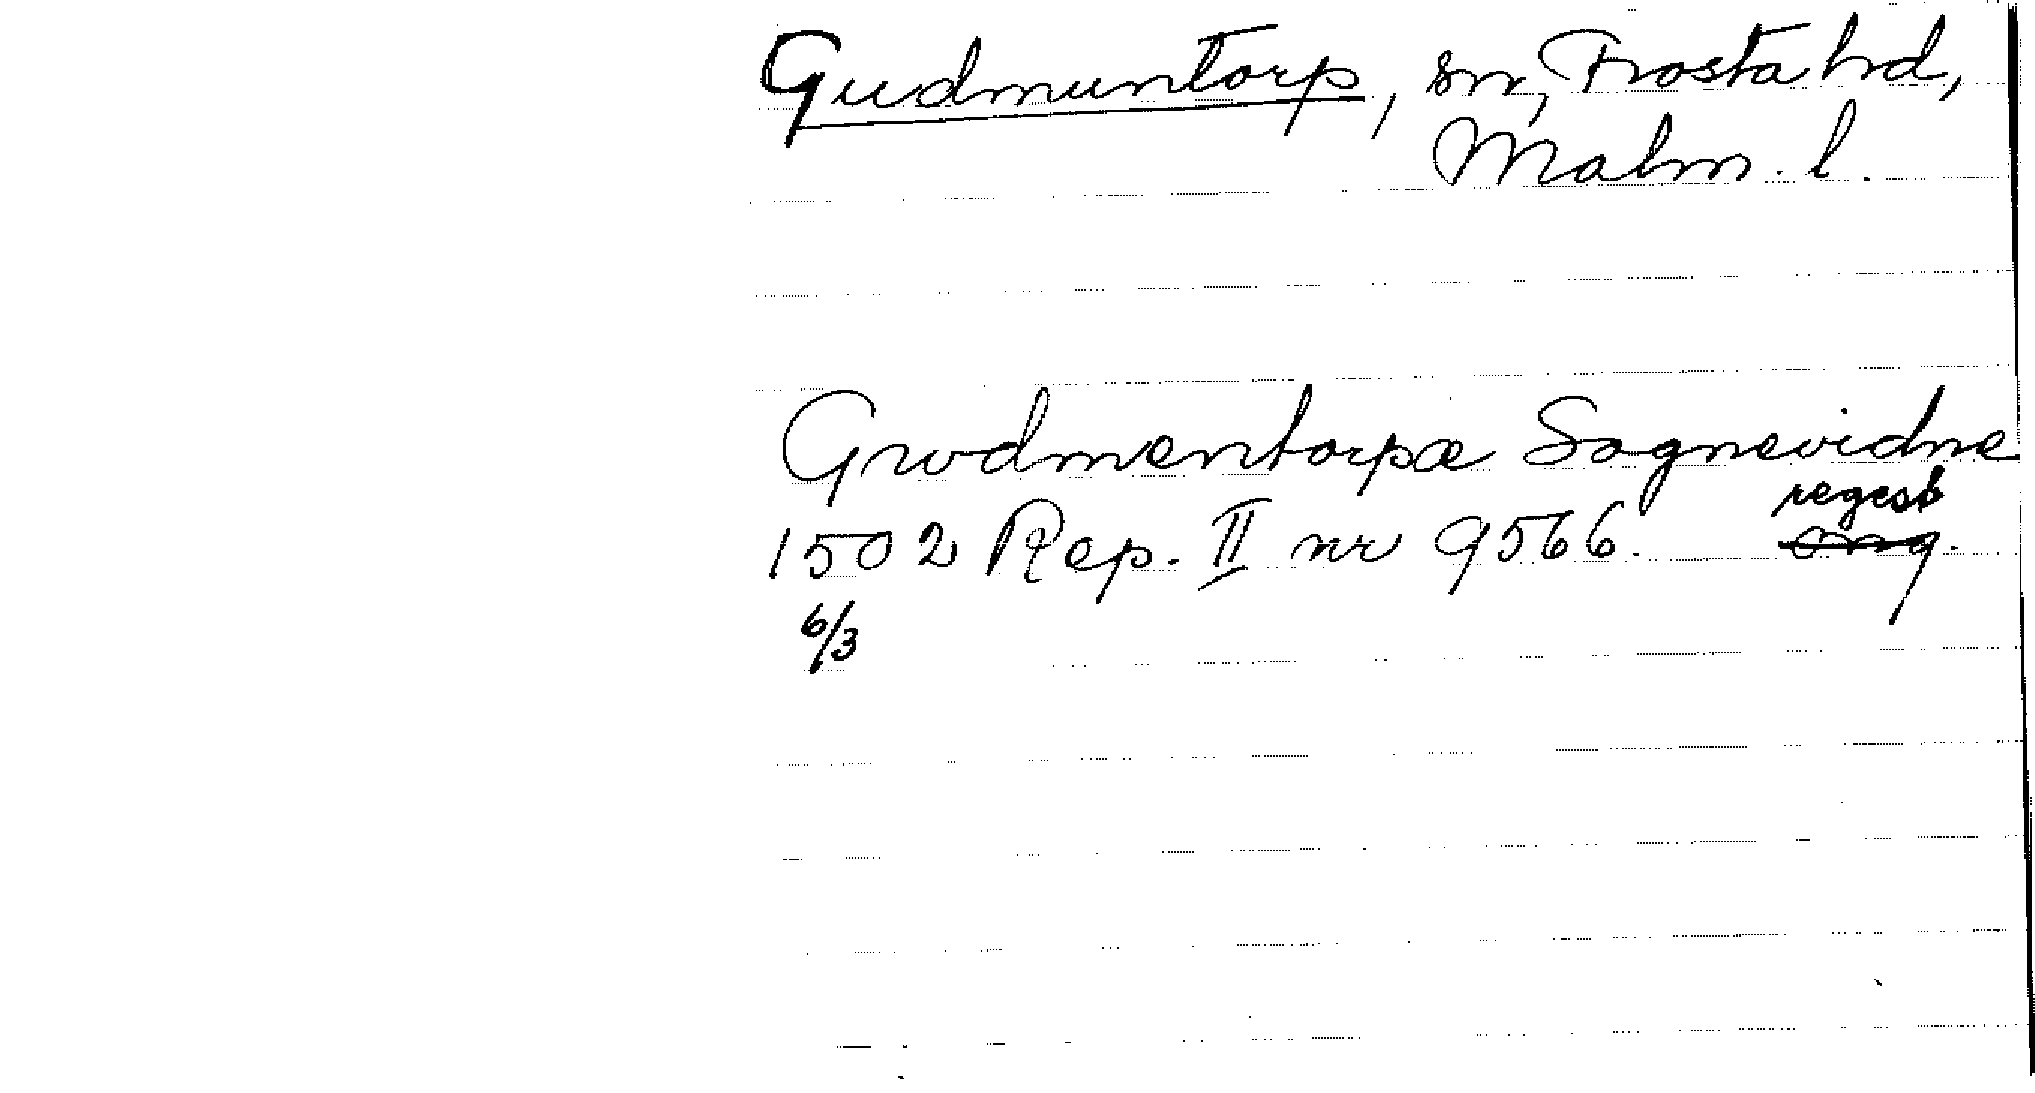 Gudmuntorp, sn, Frosta hd,
Malm. l.
Gwdmentorpæ Sognevidne
regest
1502 Rep. II nr 9566.
6/3